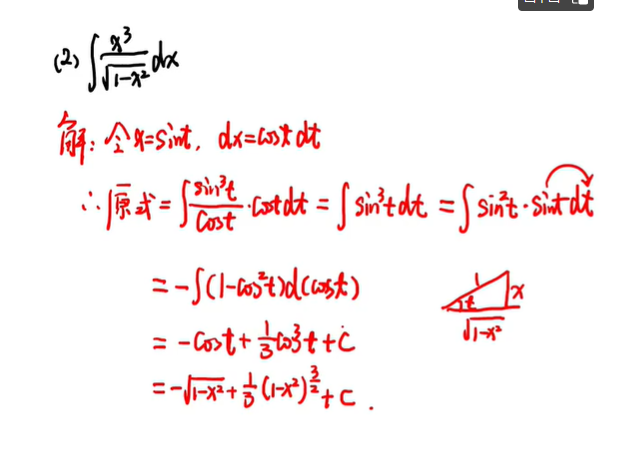 (2) ∫ x³/√(1-x²) dx
解：令x=sint, dx=cost dt
∴原式=∫ sin³t/cost · cost dt = ∫ sin³t dt = ∫ sin²t · sint dt
= -∫(1-cos²t)d(cost)
1
t
x
√(1-x²)
= -cost + 1/3 cos³t + C
= -√(1-x²) + 1/3 (1-x²)^(3/2) + C.